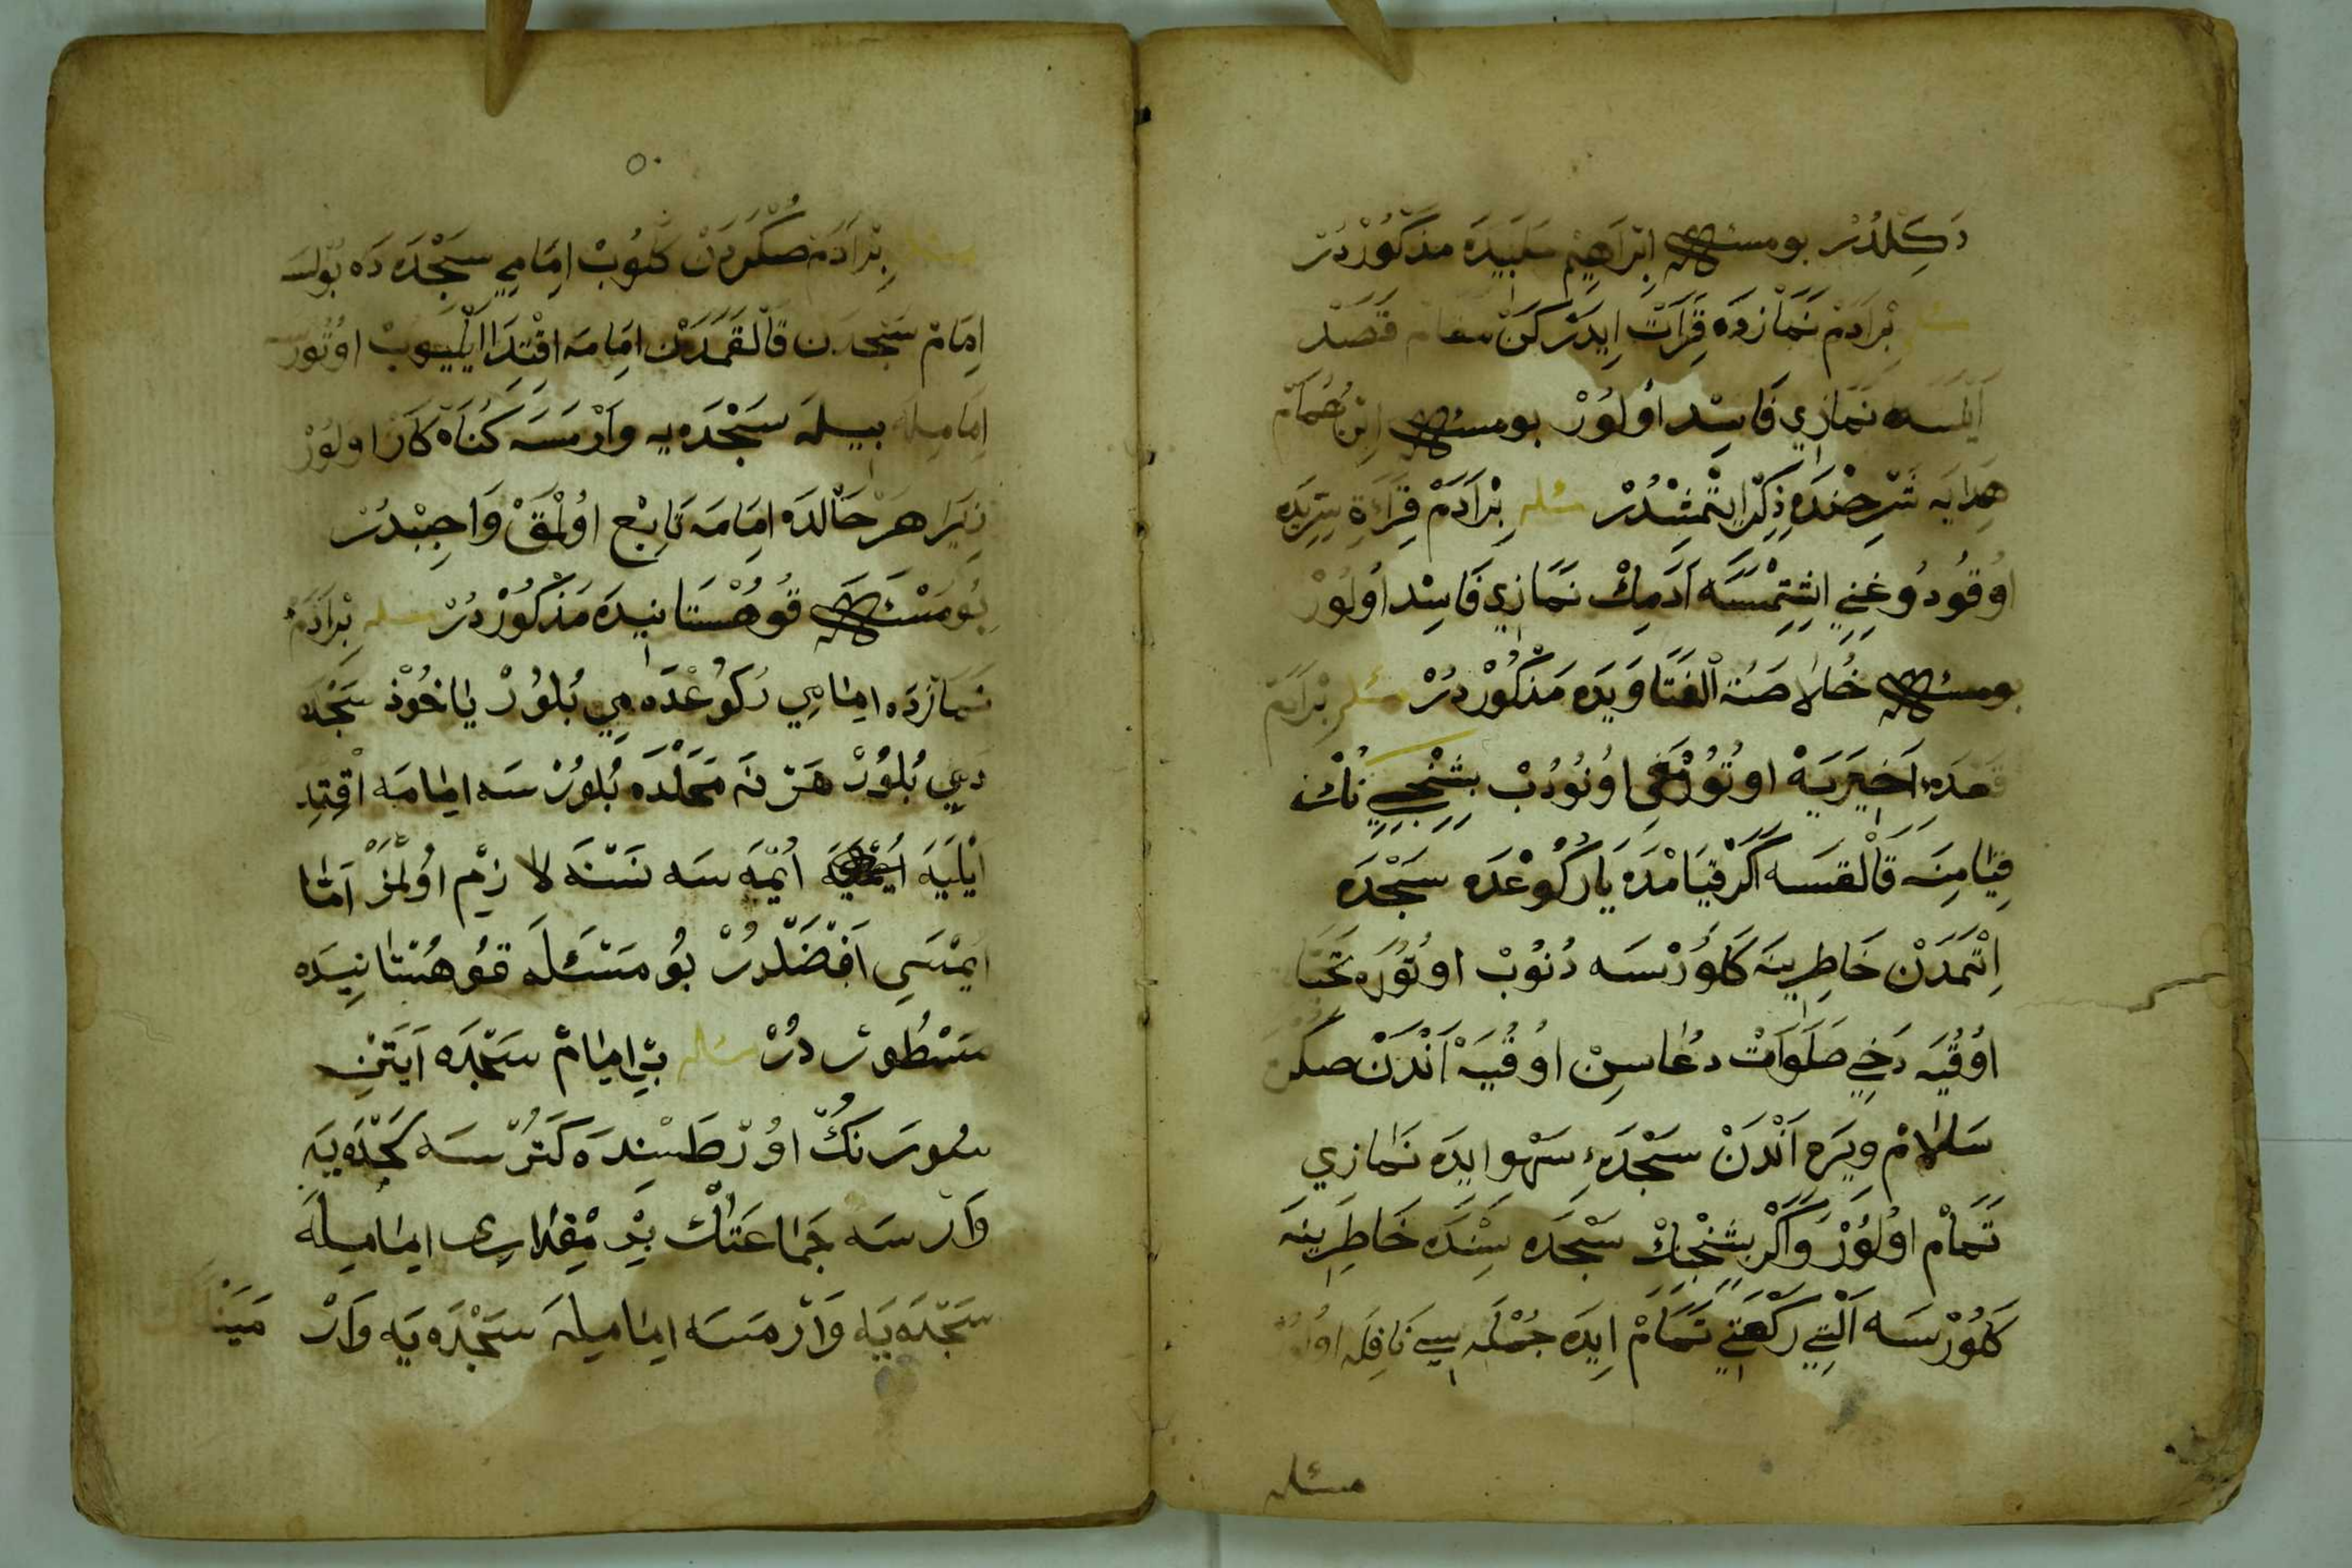 دَكِلْدُرْ بو مسئله اِبْرَاهِيمْ حَلَبِيدَه مذكُوْردُرْ
مسئله بْرَادَمْ نَمَازدَه قِرَاَتْ اِيدَرْكَنْ مقام قَصَدْ
اَيْلَسَه نَمَازِي فَاسِد اُولُوْرْ بو مسئله اِبْنِ هُمَامْ
هِدَايَه شَرْحِنْدَه ذِكِرْ اِيتْمِشْدُرْ مسئله بْرَادَمْ قِرَاءَةِ
اوُقُودُوغِنِي اِشِتِمْسَه اَدَمِكْ نَمَازِي فَاسِدْ اُولُوْرْ
بو مسئله خُلاصَةُ الْفَتَاوَيدَه مَذْكُوْردُرْ مسئله بْرَادَمْ
قَعْدَهِٔ اَخِيَرَيَه اوتُوْرْمَغِى اوُنُودُبْ بِشِنْجِي نُكْ
قِيَامِنَه قَالْقسَه اَكَرْ قِيَامْدَه يَا رُكُوْعْدَه سَجْدَه
اِتْمَدَنْ خَاطِرِينَه كَلُوْرْسَه دُنُوبْ اوتُوُرَه تَحَيَّا
اوُقُيَه دَخِي صَلَوَاتْ دُعَاسِنْ اوُقُيَه اَنْدَنْ صكره
سَلَامْ وِيَرَه اَنْدَنْ سَجْدَهِٔ سَهْو ايدَه نَمَازِي
تَمَامْ اوُلُوْرْ وَاَكَرْ بِشِنْجِنِكْ سَجْدَه سِنْدَه خَاطِرِينَه
كَلُوُرْسَه اَلْتِي رَكْعَتِي تَمَامْ اِيدَه جُمْلَه سِي نَافِلَه اوُلُوْرْ
مسئله
٥٠
مسئله بِرْاَدَمْ صُكْرَهدَنْ كَلُوبْ اِمَامِي سَجْدَه دَه بُولسَه
اِمَامْ سَجْدَدن قَالْقمَدَنْ اِمَامَه اقْتِدَا اَيْلَيوبْ اوُتُورسَه
اِمَامِيلَه بيله سَجْدَه يه وَارْمَسَه كُنَاهْكَارْ اولُوْرْ
زِيَرَا هَرْ حَالْدَه اِمَامَه تَابِعْ اوُلْمَقْ وَاجِبْدُرْ
بُو مَسْئَله قُوهُسْتَانيدَه مَذْكُوْردُرْ مسئله بْرَادَمْ
نَمَازْدَه اِمَامِي رُكُوعْدَه مِي بُلُوُرْ يَاخُوْدْ سَجْدَه
دَمِي بُلُوُرْ هَرْ نَه مَحَلْدَه بُلُوُرْسَه اِمَامَه اقْتِدِ
اَيْلَيَه اَيْتْمَسَه نَسْنَه لَا زِمْ اوُلْمَزْ اَمَّا
اِيتْمَسِي اَفْضَلْدُرْ بُو مَسْئَلَه قُوهُسْتَانِيدَه
مَسْطُورْ دُرْ مسئله بِر اِمَامْ سَجْدَه اَيَتِنِ
سُورَه نكْ اوُرْطَسْنِدَه كَتُرْسَه سَجْدَه يَه
وَارْسَه جَمَاعَتَكْ بِرْ مِقْدَارِى اِمَامِيلَه
سَجْدَه يَه وَارْمَسَه اِمَامِيلَه سَجْدَه يَه وَارْ
مَيَنْلَرْ